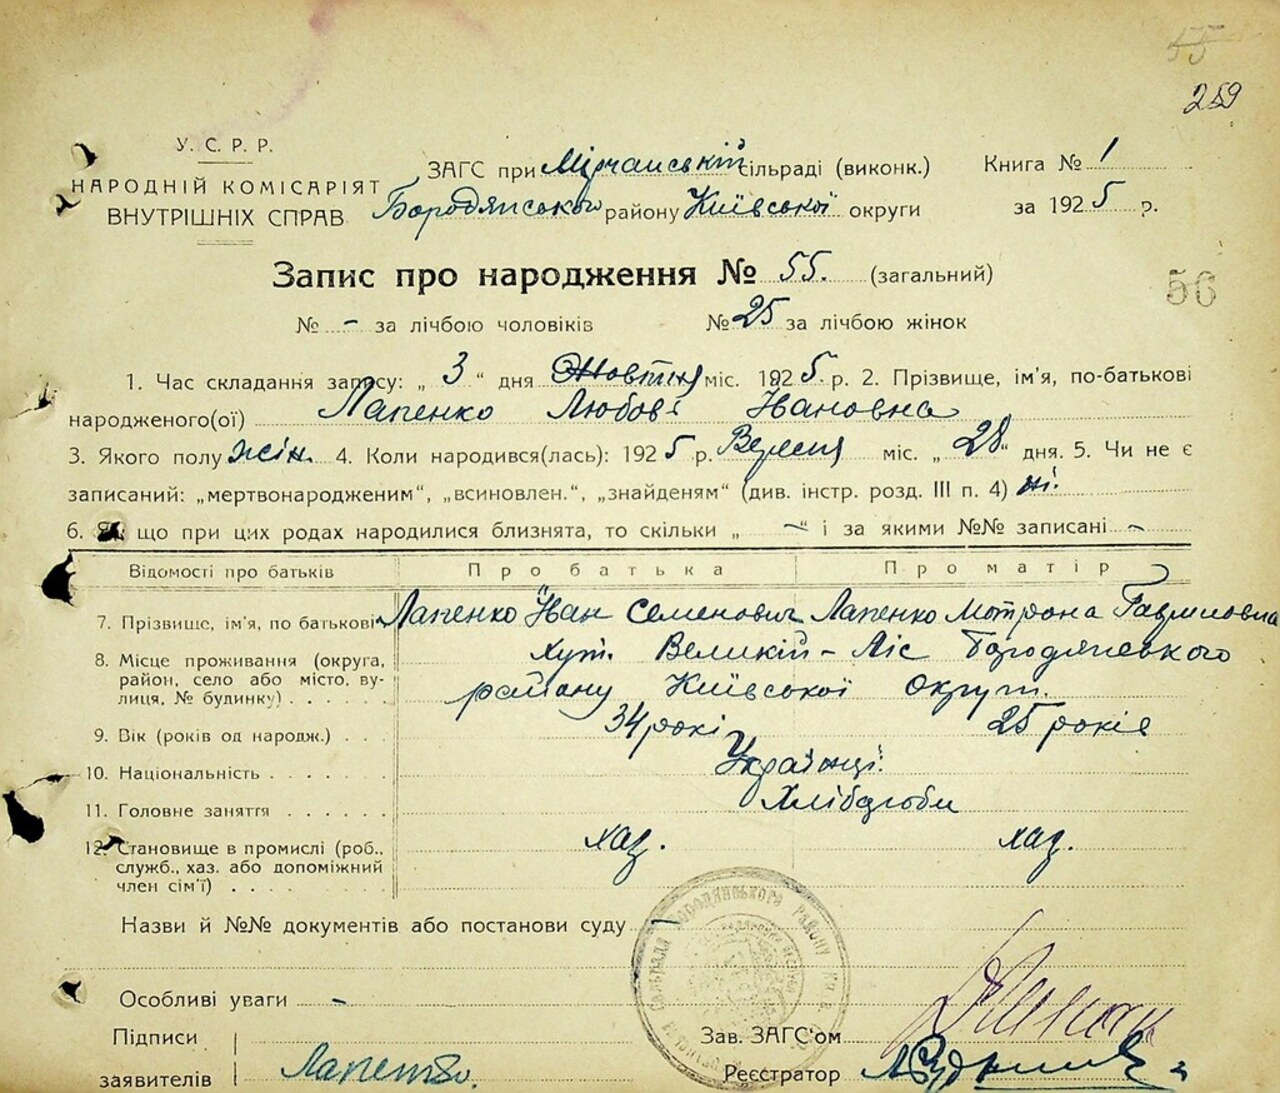 55
259
У. С. Р. Р.
НАРОДНІЙ КОМІСАРІЯТ
ВНУТРІШНІХ СПРАВ
ЗАГС при Мірчанській сільраді (виконк.) Книга № 1
Бородянського району Київської округи за 1925 р.
Запис про народження № 55. (загальний)
56
№ - за лічбою чоловіків № 25 за лічбою жінок
1. Час складання запису: „ 3 “ дня Жовтня міс. 1925 р. 2. Прізвище, ім’я, по-батькові
народженого(ої) Лапенко Любовь Івановна
3. Якого полу жін. 4. Коли народився(лась): 1925 р. Вересня міс. „ 28 “ дня. 5. Чи не є
записаний: „мертвонародженим“, „всиновлен.“, „знайденям“ (див. інстр. розд. III п. 4) ні.
6. що при цих родах народилися близнята, то скільки „ – “ і за якими №№ записані -
Відомості про батьків Про батька Про матір
7. Прізвище, ім’я, по батькові Лапенко Іван Семенович Лапенко Мотрона Гавриловна
8. Місце проживання (округа, район, село або місто, вулиця, № будинку) хут. Великій-Ліс Бородянського
району Київської Округи.
9. Вік (років од народж.) 34 років 25 років
10. Національність Українці.
11. Головне заняття Хлібороби
12. Становище в промислі (роб., служб., хаз. або допоміжний член сім’ї) хаз. хаз.
Назви й №№ документів або постанови суду –
Бородянського району
Особливі уваги -
Підписи
заявителів Лапенко.
Зав. ЗАГС’ом
Реєстратор